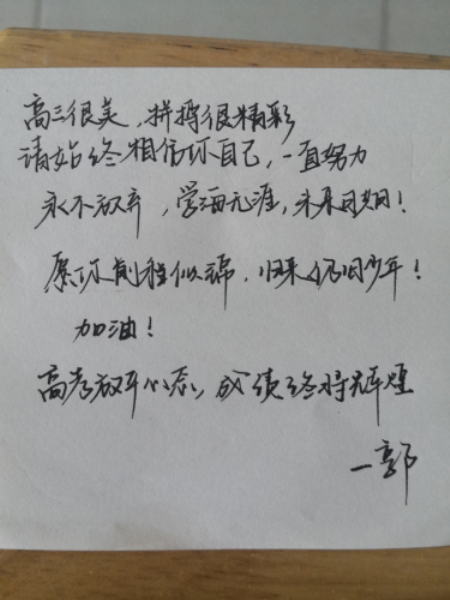 高三很美，拼搏很精彩
请始终相信你自己，一直努力
永不放弃，学海无涯，未来可期！
愿你前程似锦，归来仍旧少年！
加油！
高考放平心态，成绩终将辉煌
一郭